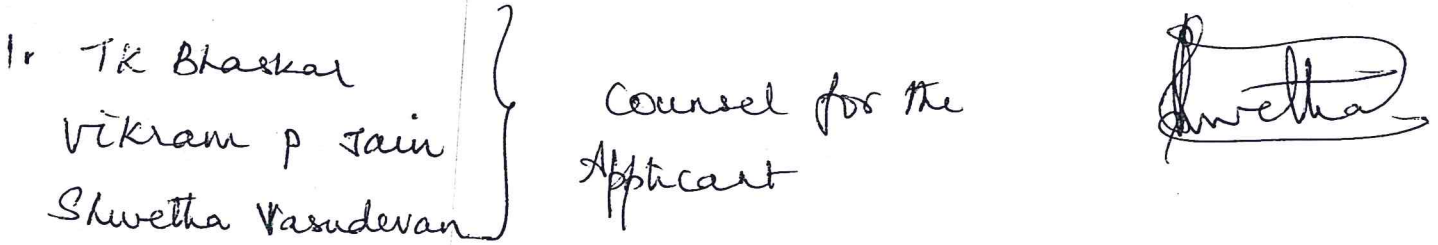 1. TK Bhaskar
Vikram P Jain
Shwetha Vasudevan
Counsel for the
Applicant
Shwetha